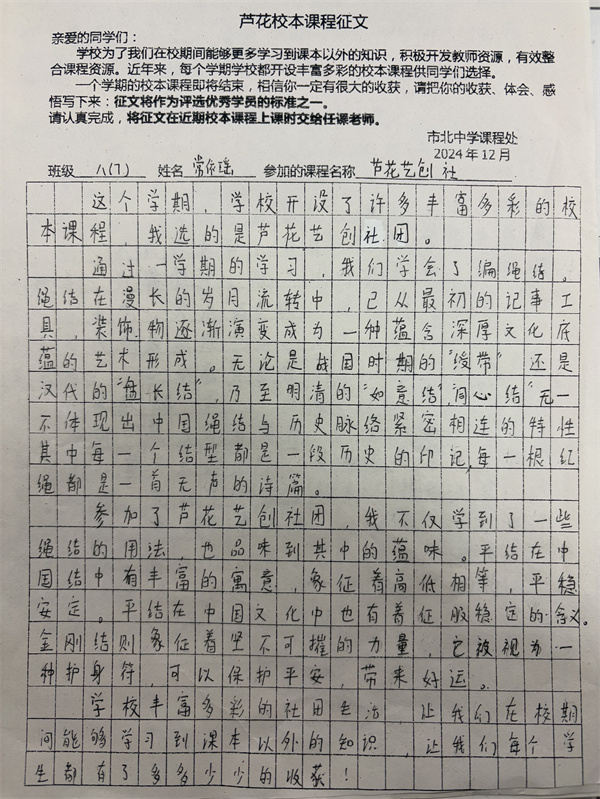 芦花校本课程征文
亲爱的同学们：
学校为了我们在校期间能够更多学习到课本以外的知识，积极开发教师资源，有效整
合课程资源。近年来，每个学期学校都开设丰富多彩的校本课程供同学们选择。
一个学期的校本课程即将结束，相信你一定有很大的收获，请把你的收获、体会、感
悟写下来：征文将作为评选优秀学员的标准之一。
请认真完成，将征文在近期校本课程上课时交给任课老师。
市北中学课程处
2024年12月
班级 八(7) 姓名 常依瑶 参加的课程名称 芦花艺创社
这个学期，学校开设了许多丰富多彩的校
本课程，我选的是芦花艺创社团。
通过一学期的学习，我们学会了编绳结。
绳结在漫长的岁月流转中，已从最初的记事工
具，装饰物逐渐演变成为一种蕴含深厚文化底
蕴的艺术形成。无论是战国时期的“绶带”还是
汉代的“盘长结”，乃至明清的“如意结”，“同心结”无一
不体现出中国绳结与历史脉络紧密相连的特性
其中每一个结型都是一段历史的印记，每一根红
绳都是一首无声的诗篇。
参加了芦花艺创社团，我不仅学到了一些
绳结的用法，也品味到其中的蕴味。平结在中
国结中有丰富的寓意，象征着高低相等，平稳
安定。平结在中国文化中也有着征服稳定的含义。
金刚结则象征着坚不可摧的力量，它被视为一
种护身符，可以保护平安，带来好运。
学校丰富多彩的社团生活，让我们在校期
间能够学习到课本以外的知识，让我们每个学
生都有了多多少少的收获！